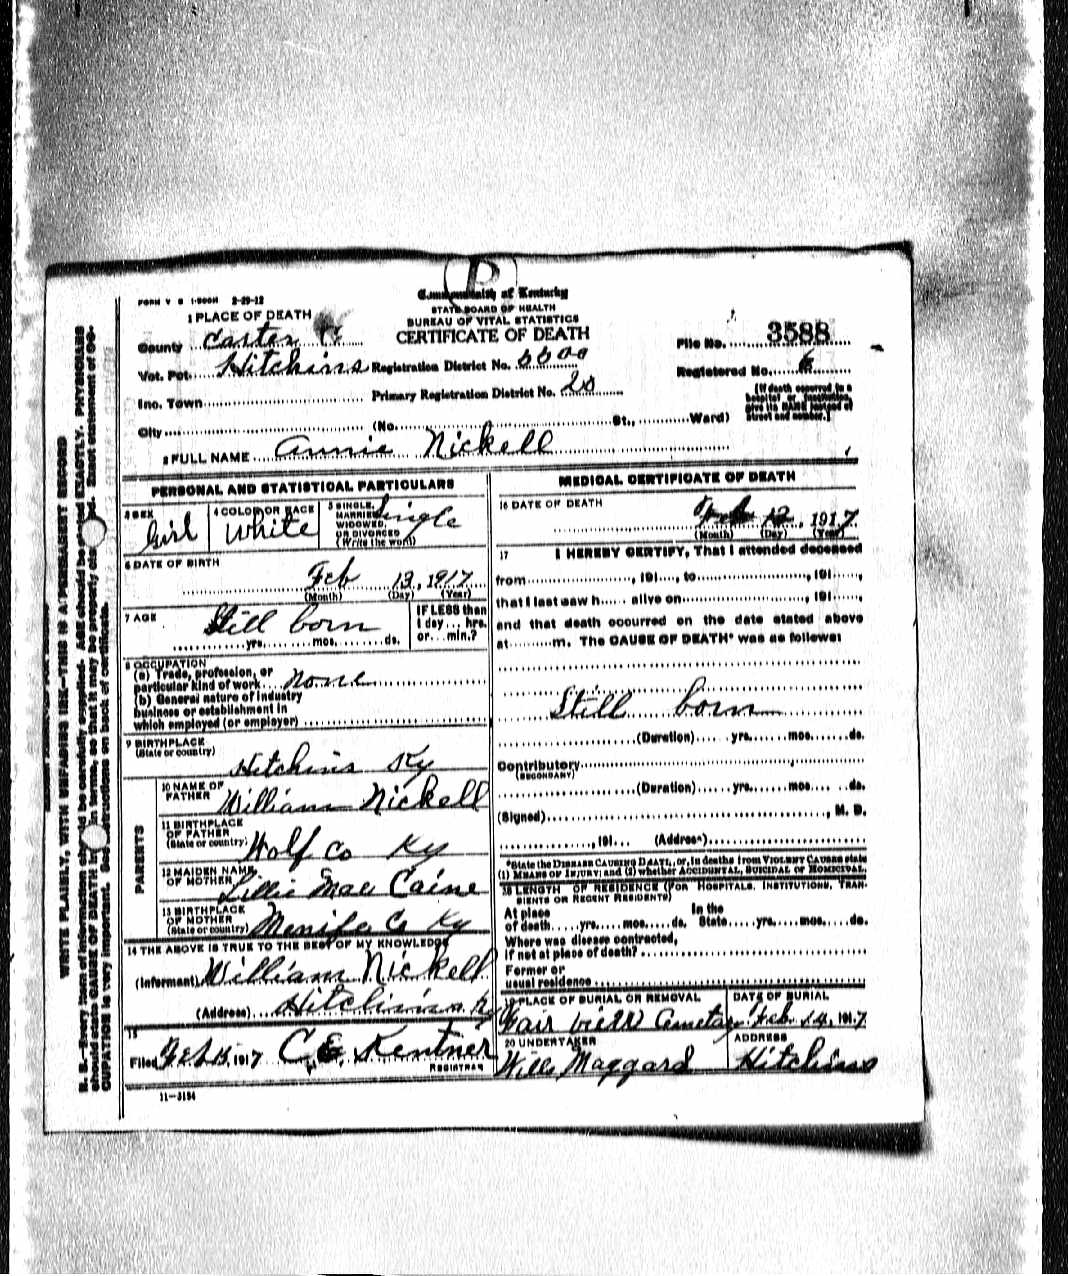 P
FORM V S 1-500M 2-29-12
Commonwealth of Kentucky
STATE BOARD OF HEALTH
BUREAU OF VITAL STATISTICS
CERTIFICATE OF DEATH
1 PLACE OF DEATH
County Carter
Vot. Pct. Hitchins
Inc. Town
City
Registration District No.
Primary Registration District No. 20
(No. St., Ward)
File No. 3588
Registered No. 6
[If death occurred in a
hospital or institution,
give its NAME instead of
street and number.]
2 FULL NAME Annie Nickell
PERSONAL AND STATISTICAL PARTICULARS
3 SEX
Girl
4 COLOR OR RACE
White
5 SINGLE,
MARRIED,
WIDOWED,
OR DIVORCED
(Write the word)
Single
6 DATE OF BIRTH
Feb 13, 1917
(Month) (Day) (Year)
7 AGE
Still born
yrs. mos. ds.
IF LESS than
1 day... hrs.
or... min.?
8 OCCUPATION
(a) Trade, profession, or
particular kind of work none
(b) General nature of industry
business or establishment in
which employed (or employer)
9 BIRTHPLACE
(State or country)
Hitchins Ky
PARENTS
10 NAME OF
FATHER
William Nickell
11 BIRTHPLACE
OF FATHER
(State or country)
Wolf Co Ky
12 MAIDEN NAME
OF MOTHER
Lillie Mae Caine
13 BIRTHPLACE
OF MOTHER
(State or country)
Menifa Co Ky
14 THE ABOVE IS TRUE TO THE BEST OF MY KNOWLEDGE
(Informant) William Nickell
(Address) Hitchins Ky
15
Filed Feb 15, 1917 C. E. Kentner
REGISTRAR
11—3184
MEDICAL CERTIFICATE OF DEATH
16 DATE OF DEATH
Feb , 1917
(Month) (Day) (Year)
17 I HEREBY CERTIFY, That I attended deceased
from , 191 , to , 191 ,
that I last saw h alive on , 191 ,
and that death occurred on the date stated above
at m. The CAUSE OF DEATH* was as follows:
Still born
(Duration) yrs. mos. ds.
Contributory
(SECONDARY)
(Duration) yrs. mos. ds.
(Signed) , M. D.
, 191 (Address)
*State the DISEASE CAUSING DEATH, or, in deaths from VIOLENT CAUSES state
(1) MEANS OF INJURY; and (2) whether ACCIDENTAL, SUICIDAL or HOMICIDAL.
18 LENGTH OF RESIDENCE (FOR HOSPITALS, INSTITUTIONS, TRAN-
SIENTS OR RECENT RESIDENTS)
At place In the
of death yrs. mos. ds. State yrs. mos. ds.
Where was disease contracted,
if not at place of death?
Former or
usual residence
19 PLACE OF BURIAL OR REMOVAL
Fair view Cemetary
DATE OF BURIAL
Feb. 14, 1917
20 UNDERTAKER
Will Maggard
ADDRESS
Hitchins
WRITE PLAINLY, WITH UNFADING INK—THIS IS A PERMANENT RECORD
N. B.—Every item of information should be carefully supplied. AGE should be stated EXACTLY. PHYSICIANS
should state CAUSE OF DEATH in terms, so that it may be properly Exact statement of OC-
CUPATION is very important. See instructions on back of certificate.